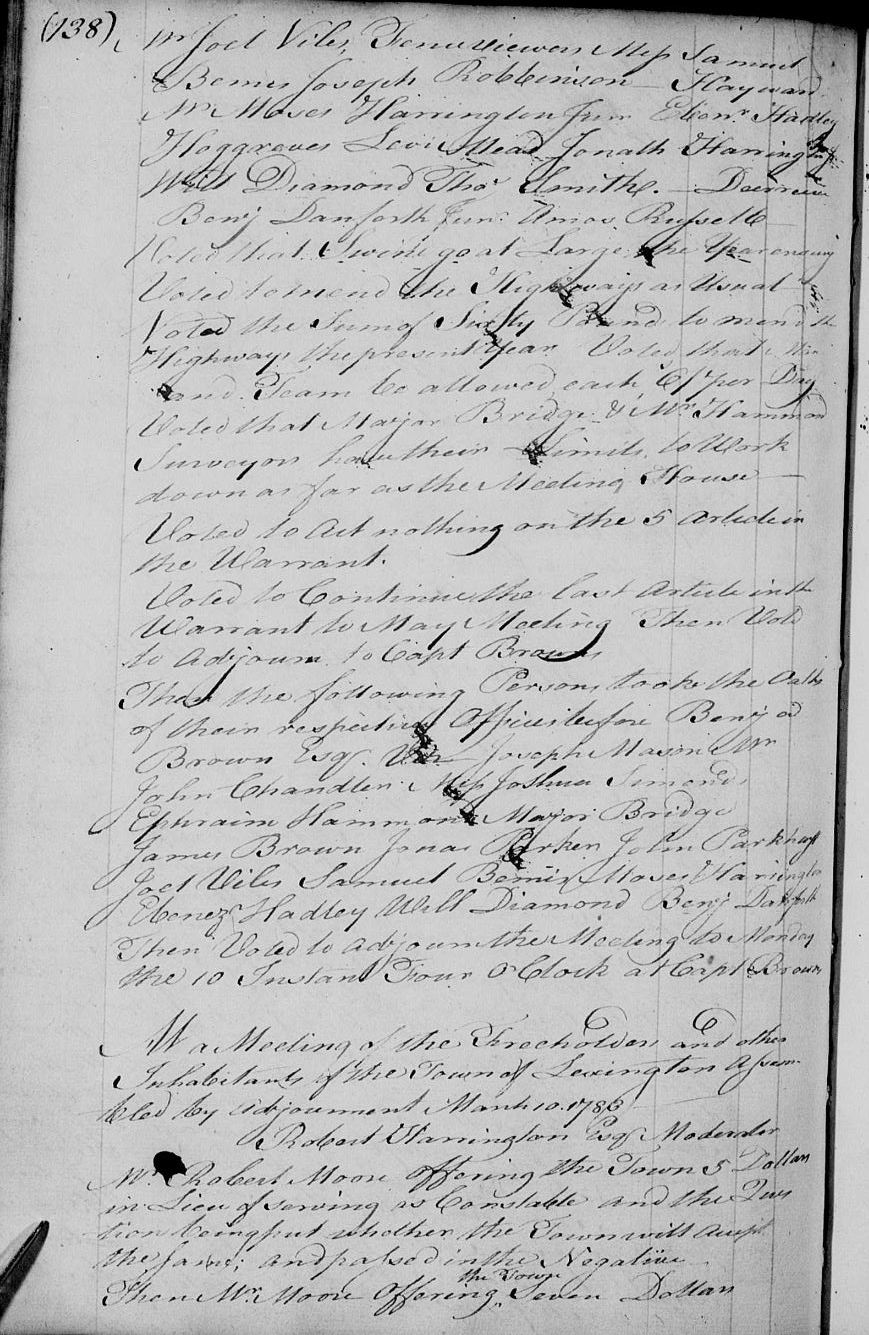 (138)
Mr Joel Viles, Fenceviewers Mess Samuel
Bemis Joseph Robbinson — Hayward
Mr Moses Harrington Junr Ebenr Hadley
Hoggreves Levi Mead Jonath Harrington
Will Diamond Thos Smith. — Deerreve
Benj Danforth Junr Amos Russell
Voted that Swine go at Large the Year ensuing
Voted to mend the Highways as Usual
Voted the Sum of Sixty Pound to mend the
Highways the present Year Voted that Man
and Team be allowed each 6/ per Day
Voted that Major Bridge & Mr Hammond
Surveyors have their Limits to Work
down as far as the Meeting House —
Voted to Act nothing on the 5 Article in
the Warrant.
Voted to Continue the last Article in the
Warrant to May Meeting Then Voted
to Adjourn to Capt Browns
Then the following Persons took the Oaths
of their respective Offices before Benj ad
Brown Esqr. Viz — Joseph Mason Mr
John Chandler Mess Joshua Simonds
Ephraim Hammond Major Bridge
James Brown Jonas Parker John Parkhust
Joel Viles Samuel Bemis Moses Harrington
Ebenez Hadley Will Diamond Benj Danforth
Then Voted to Adjourn the Meeting to Monday
the 10 Instant Four O Clock at Capt Browns
At a Meeting of the Freeholders and other
Inhabitants of the Town of Lexington Assem-
bled by Adjournment March 10. 1783
Robert Harrington Esqr Moderator
Mr. Robert Moore Offering the Town 5 Dollars
in Lieu of serving as Constable and the Ques
tion being put whether the Town will accept
the same; and passed in the Negative
Then Mr. Moore Offering the Town Seven Dollars